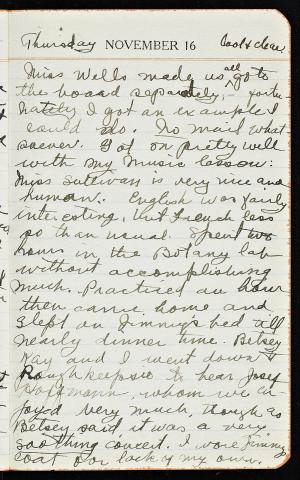 Thursday NOVEMBER 16 Cool & clear.
Miss Wells made us all go to
the board separately, - fortu-
nately I got an example I
could do. No mail what-
soever. Got on pretty well
with my music lesson:
Miss Sullivan is very nice and
human. English was fairly
interesting, but French less
so than usual. Spent two
hours in the Botany lab
without accomplishing
much. Practiced an hour
then came home and
slept on Jimmy's bed till
nearly dinner time. Betsey
Kay and I went down to
Poughkeepsie to hear Josef
Hoffmann, whom we en-
joyed very much, though as
Betsey said it was a very
soothing concert. I wore Jimmy's
coat for lack of my own.